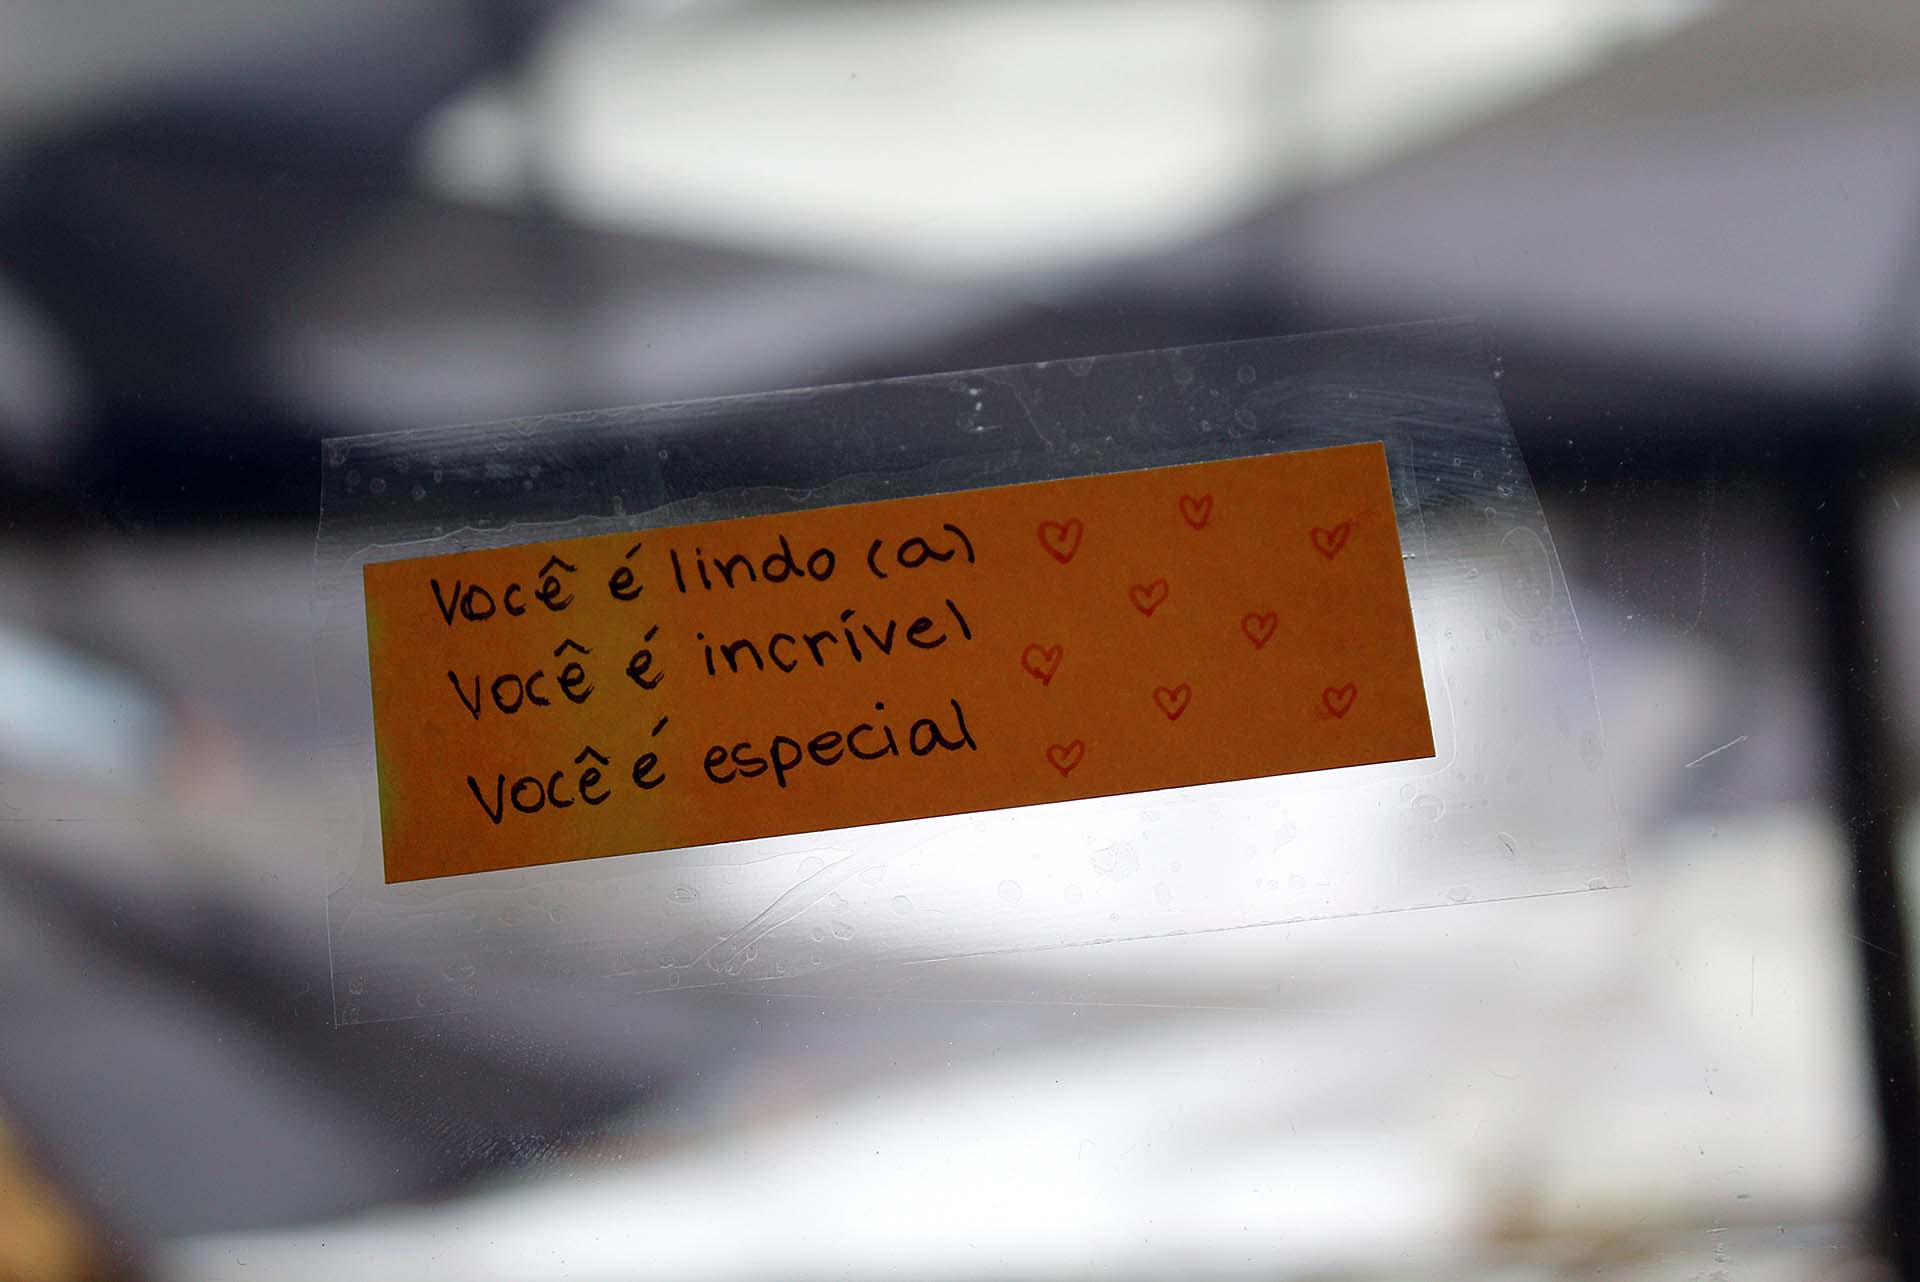 Você é lindo (a)
Você é incrível
Você é especial